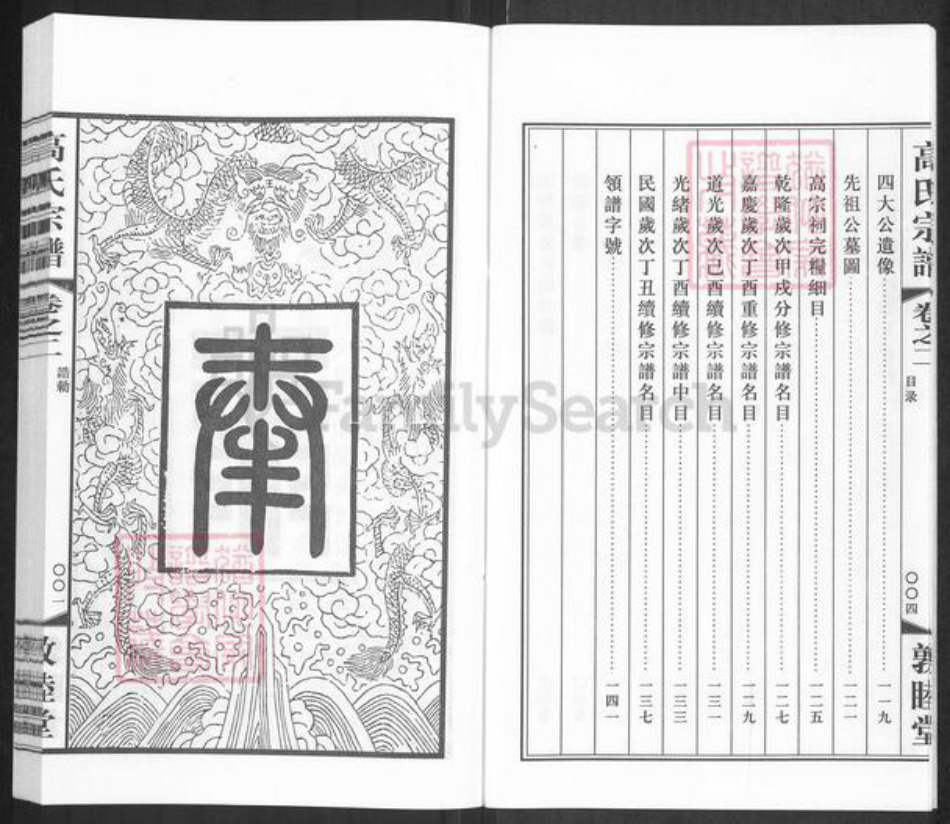 高氏宗譜
卷之二
目录
〇〇四
敦睦堂
四大公遺像⋯⋯一一九
先祖公墓圖⋯⋯一二一
高宗祠完糧細目⋯⋯一二五
乾隆歲次甲戌分修宗譜名目⋯⋯一二七
嘉慶歲次丁酉重修宗譜名目⋯⋯一二九
道光歲次己酉續修宗譜名目⋯⋯一三一
光緒歲次丁酉續修宗譜中目⋯⋯一三三
民國歲次丁丑續修宗譜名目⋯⋯一三七
領譜字號⋯⋯一四一
奉
高氏宗譜
卷之二
誥勅
〇〇一
敦睦堂
FamilySearch